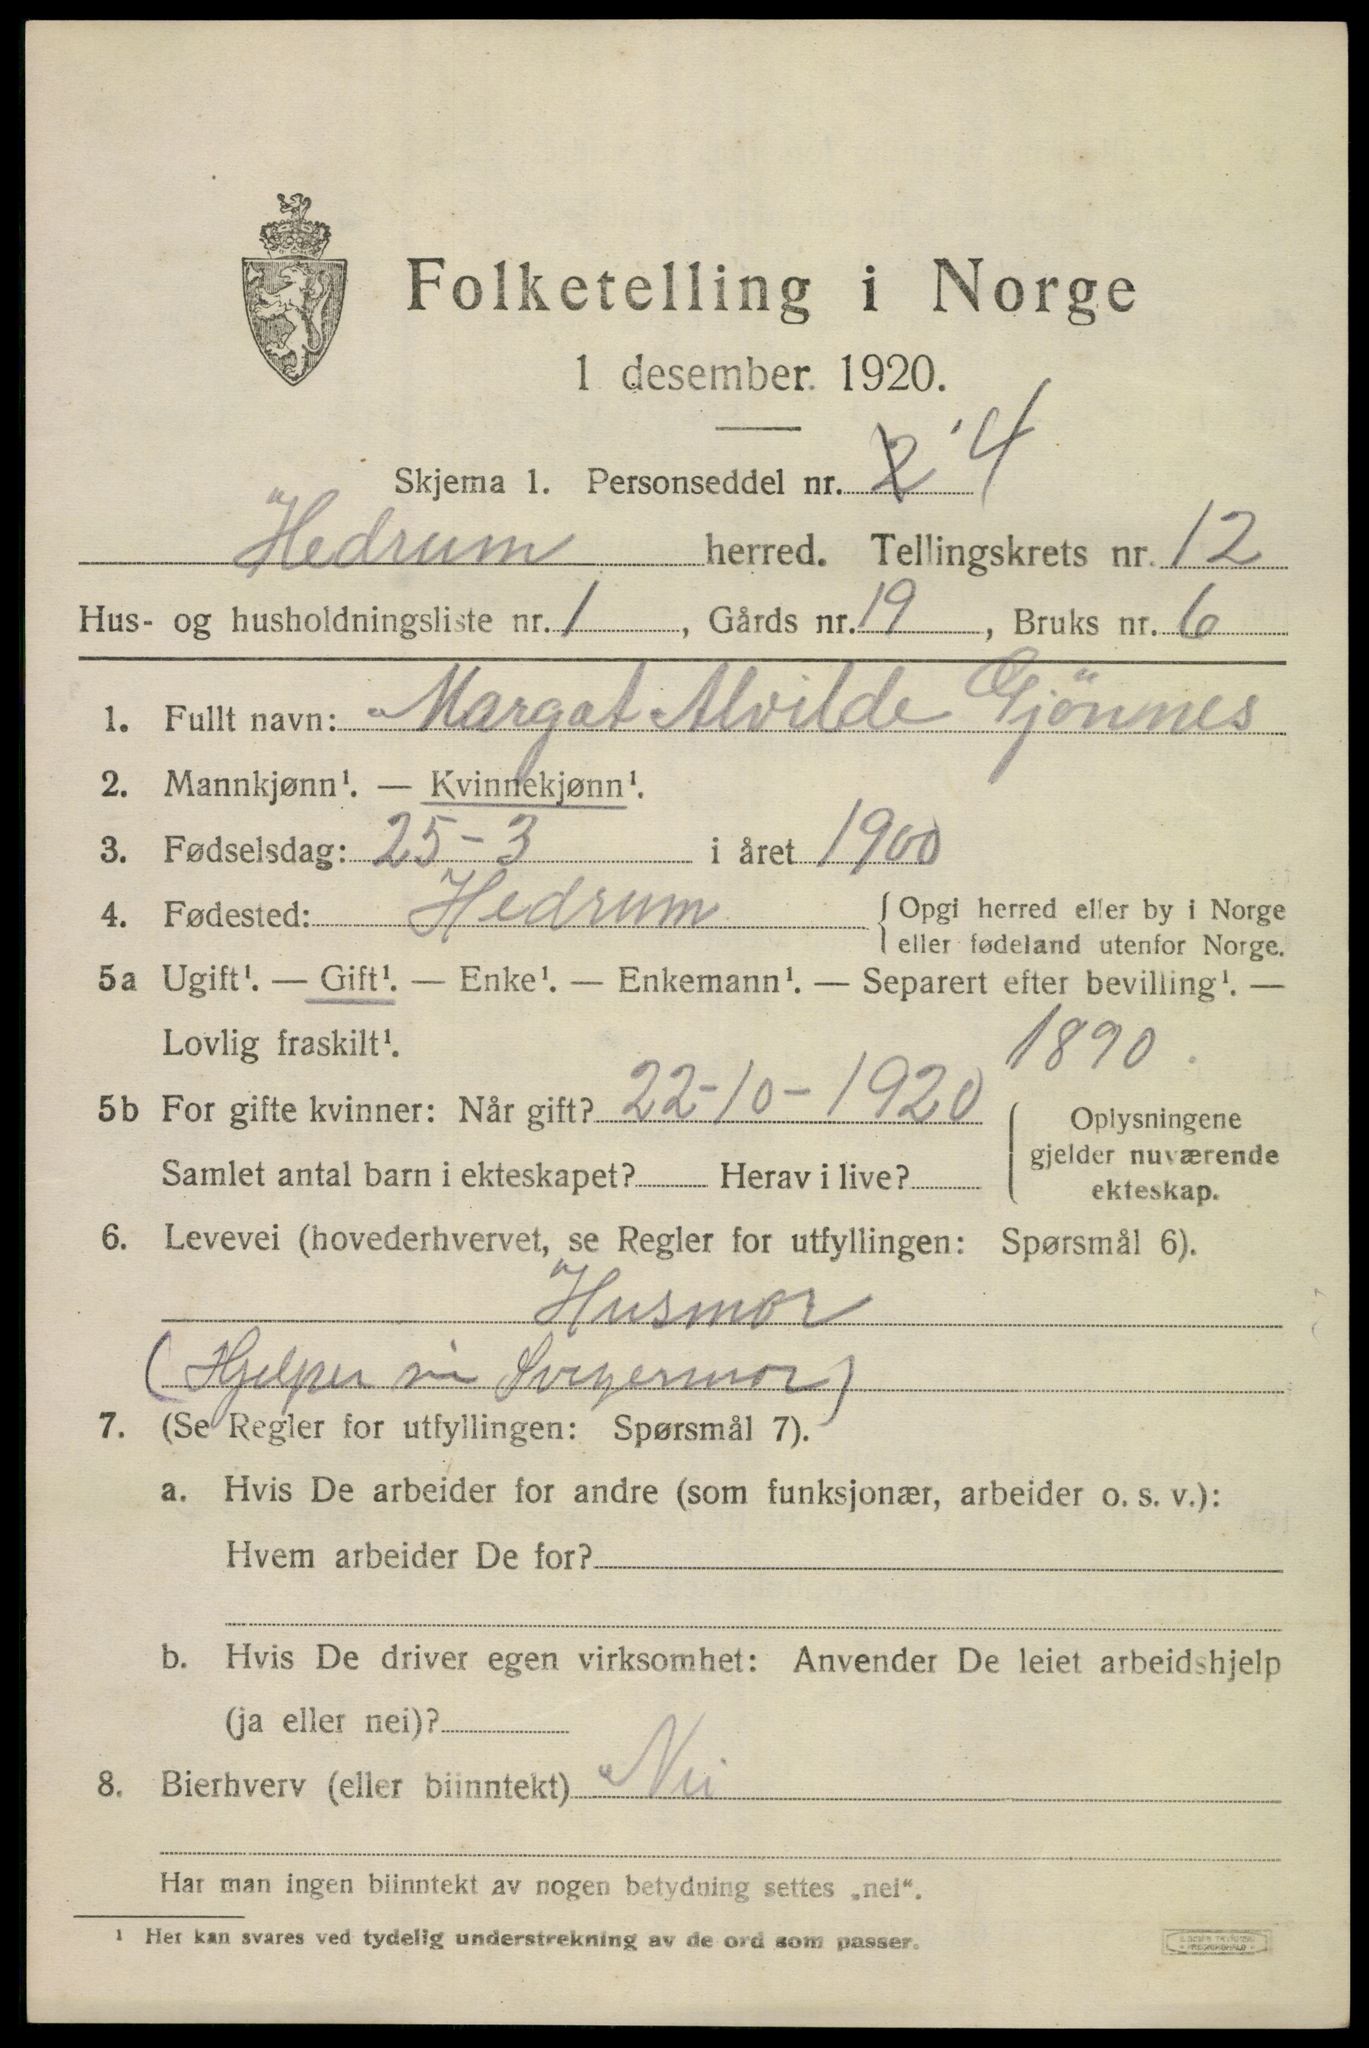 Folketelling i Norge
1 desember 1920.
Skjema 1. Personseddel nr. 2 4
Hedrum herred. Tellingskrets nr. 12
Hus- og husholdningsliste nr. 1, Gårds nr. 19, Bruks nr. 6
1. Fullt navn: Margat Alvilde Gjönnes
2. Mannkjønn¹. — Kvinnekjønn¹.
3. Fødselsdag: 25-3 i året 1900
4. Fødested: Hedrum { Opgi herred eller by i Norge
eller fødeland utenfor Norge.
5a Ugift¹. — Gift¹. — Enke¹. — Enkemann¹. — Separert efter bevilling¹. —
Lovlig fraskilt¹.
1890.
5b For gifte kvinner: Når gift? 22-10-1920
Samlet antal barn i ekteskapet? Herav i live?
Oplysningene
gjelder nuværende
ekteskap.
6. Levevei (hovederhvervet, se Regler for utfyllingen: Spørsmål 6).
Husmor
(Hjelper Svigermor)
7. (Se Regler for utfyllingen: Spørsmål 7).
a. Hvis De arbeider for andre (som funksjonær, arbeider o. s. v.):
Hvem arbeider De for?
b. Hvis De driver egen virksomhet: Anvender De leiet arbeidshjelp
(ja eller nei)?
8. Bierhverv (eller biinntekt) Nei
Har man ingen biinntekt av nogen betydning settes „nei“.
¹ Her kan svares ved tydelig understrekning av de ord som passer.